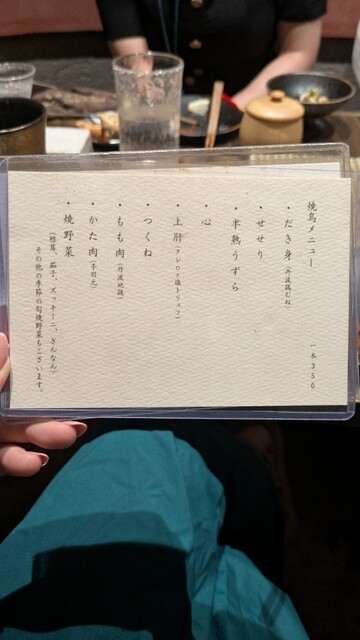 焼鳥メニュー
一本350
・だき身(丹波鶏むね)
・せせり
・半熟うずら
・心
・上肝(タレor塩トリュフ)
・つくね
・もも肉(丹波地鶏)
・かた肉(手羽元)
・焼野菜
(椎茸、茄子、ズッキーニ、ぎんなん)
その他の季節の旬焼野菜もございます。